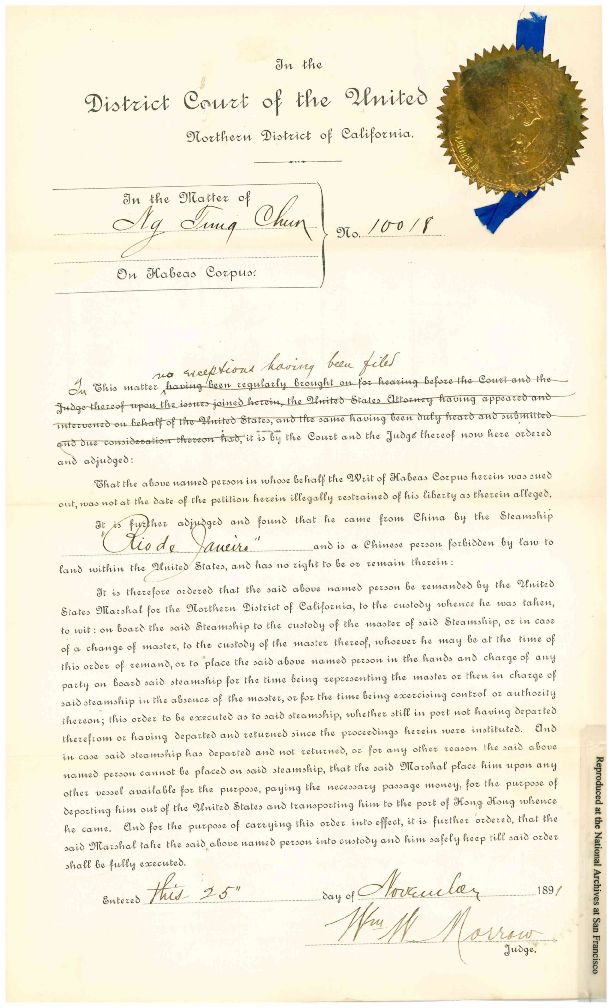 In the
District Court of the United
Northern District of California.
In the Matter of
Ng Tung Chun
No. 10018
On Habeas Corpus:
no exceptions having been filed
In This matter having been regularly brought on for hearing before the Court and the
Judge thereof upon the issues joined herein, the United States Attorney having appeared and
intervened on behalf of the United States, and the same having been duly heard and submitted
and due consideration thereon had, it is by the Court and the Judge thereof now here ordered
and adjudged:
That the above named person in whose behalf the Writ of Habeas Corpus herein was sued
out, was not at the date of the petition herein illegally restrained of his liberty as therein alleged.
It is further adjudged and found that he came from China by the Steamship
"Rio de Janeiro" and is a Chinese person forbidden by law to
land within the United States, and has no right to be or remain therein:
It is therefore ordered that the said above named person be remanded by the United
States Marshal for the Northern District of California, to the custody whence he was taken,
to wit: on board the said Steamship to the custody of the master of said Steamship, or in case
of a change of master, to the custody of the master thereof, whoever he may be at the time of
this order of remand, or to place the said above named person in the hands and charge of any
party on board said steamship for the time being representing the master or then in charge of
said steamship in the absence of the master, or for the time being exercising control or authority
thereon; this order to be executed as to said steamship, whether still in port not having departed
therefrom or having departed and returned since the proceedings herein were instituted. And
in case said steamship has departed and not returned, or for any other reason the said above
named person cannot be placed on said steamship, that the said Marshal place him upon any
other vessel available for the purpose, paying the necessary passage money, for the purpose of
deporting him out of the United States and transporting him to the port of Hong Kong whence
he came. And for the purpose of carrying this order into effect, it is further ordered, that the
said Marshal take the said above named person into custody and him safely keep till said order
shall be fully executed.
Entered this 25" day of November 1891
Wm W Morrow
Judge.
Reproduced at the National Archives at San Francisco